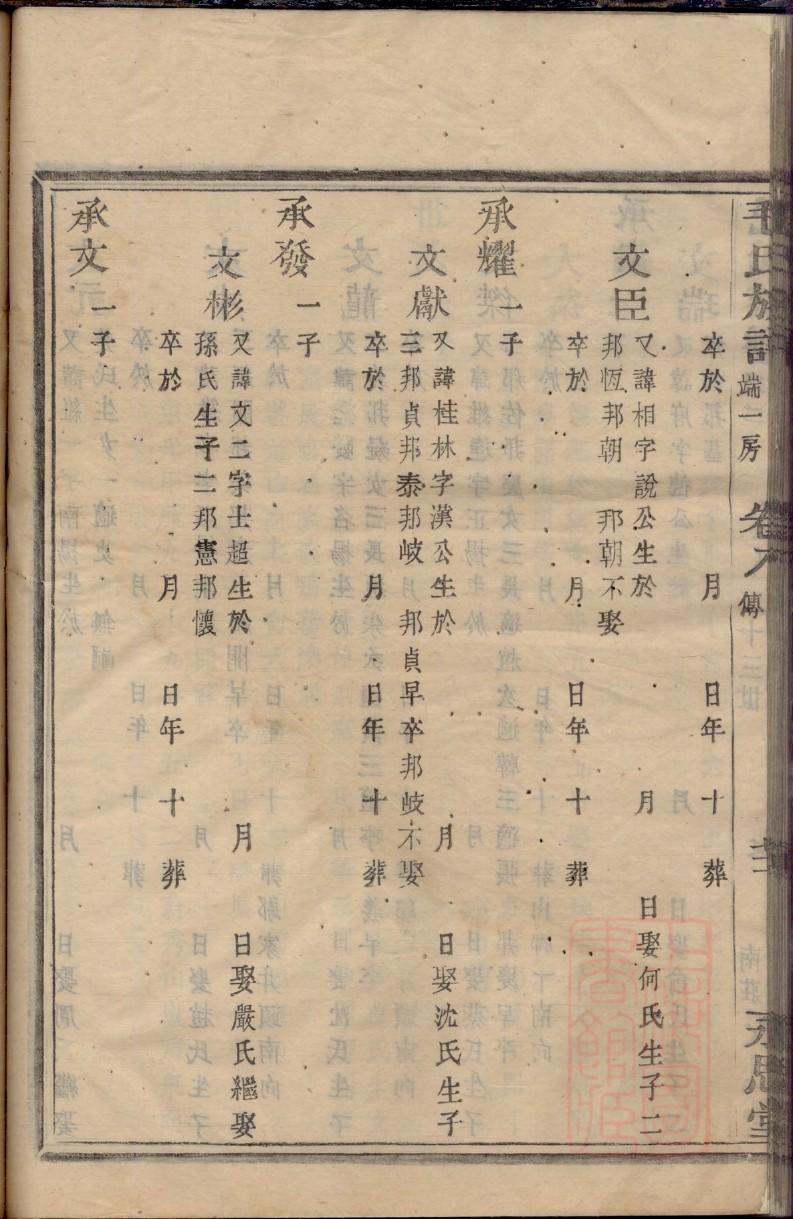 毛氏族譜 端一房 卷八 傳 十三世 南莊 永思堂
卒於 月 日年 十 葬
文臣 又諱相字說公生於 月 日娶何氏生子二
邦恆邦朝 邦朝不娶
卒於 月 日年 十 葬
承耀一子
文獻 又諱桂林字漢公生於 月 日娶沈氏生子
三邦貞邦泰邦岐 邦貞早卒邦岐不娶
卒於 月 日年 十 葬
承發一子
文彬 又諱文二字士超生於 月 日娶嚴氏繼娶
孫氏生子二邦憲邦懷
卒於 月 日年 十 葬
承文一子